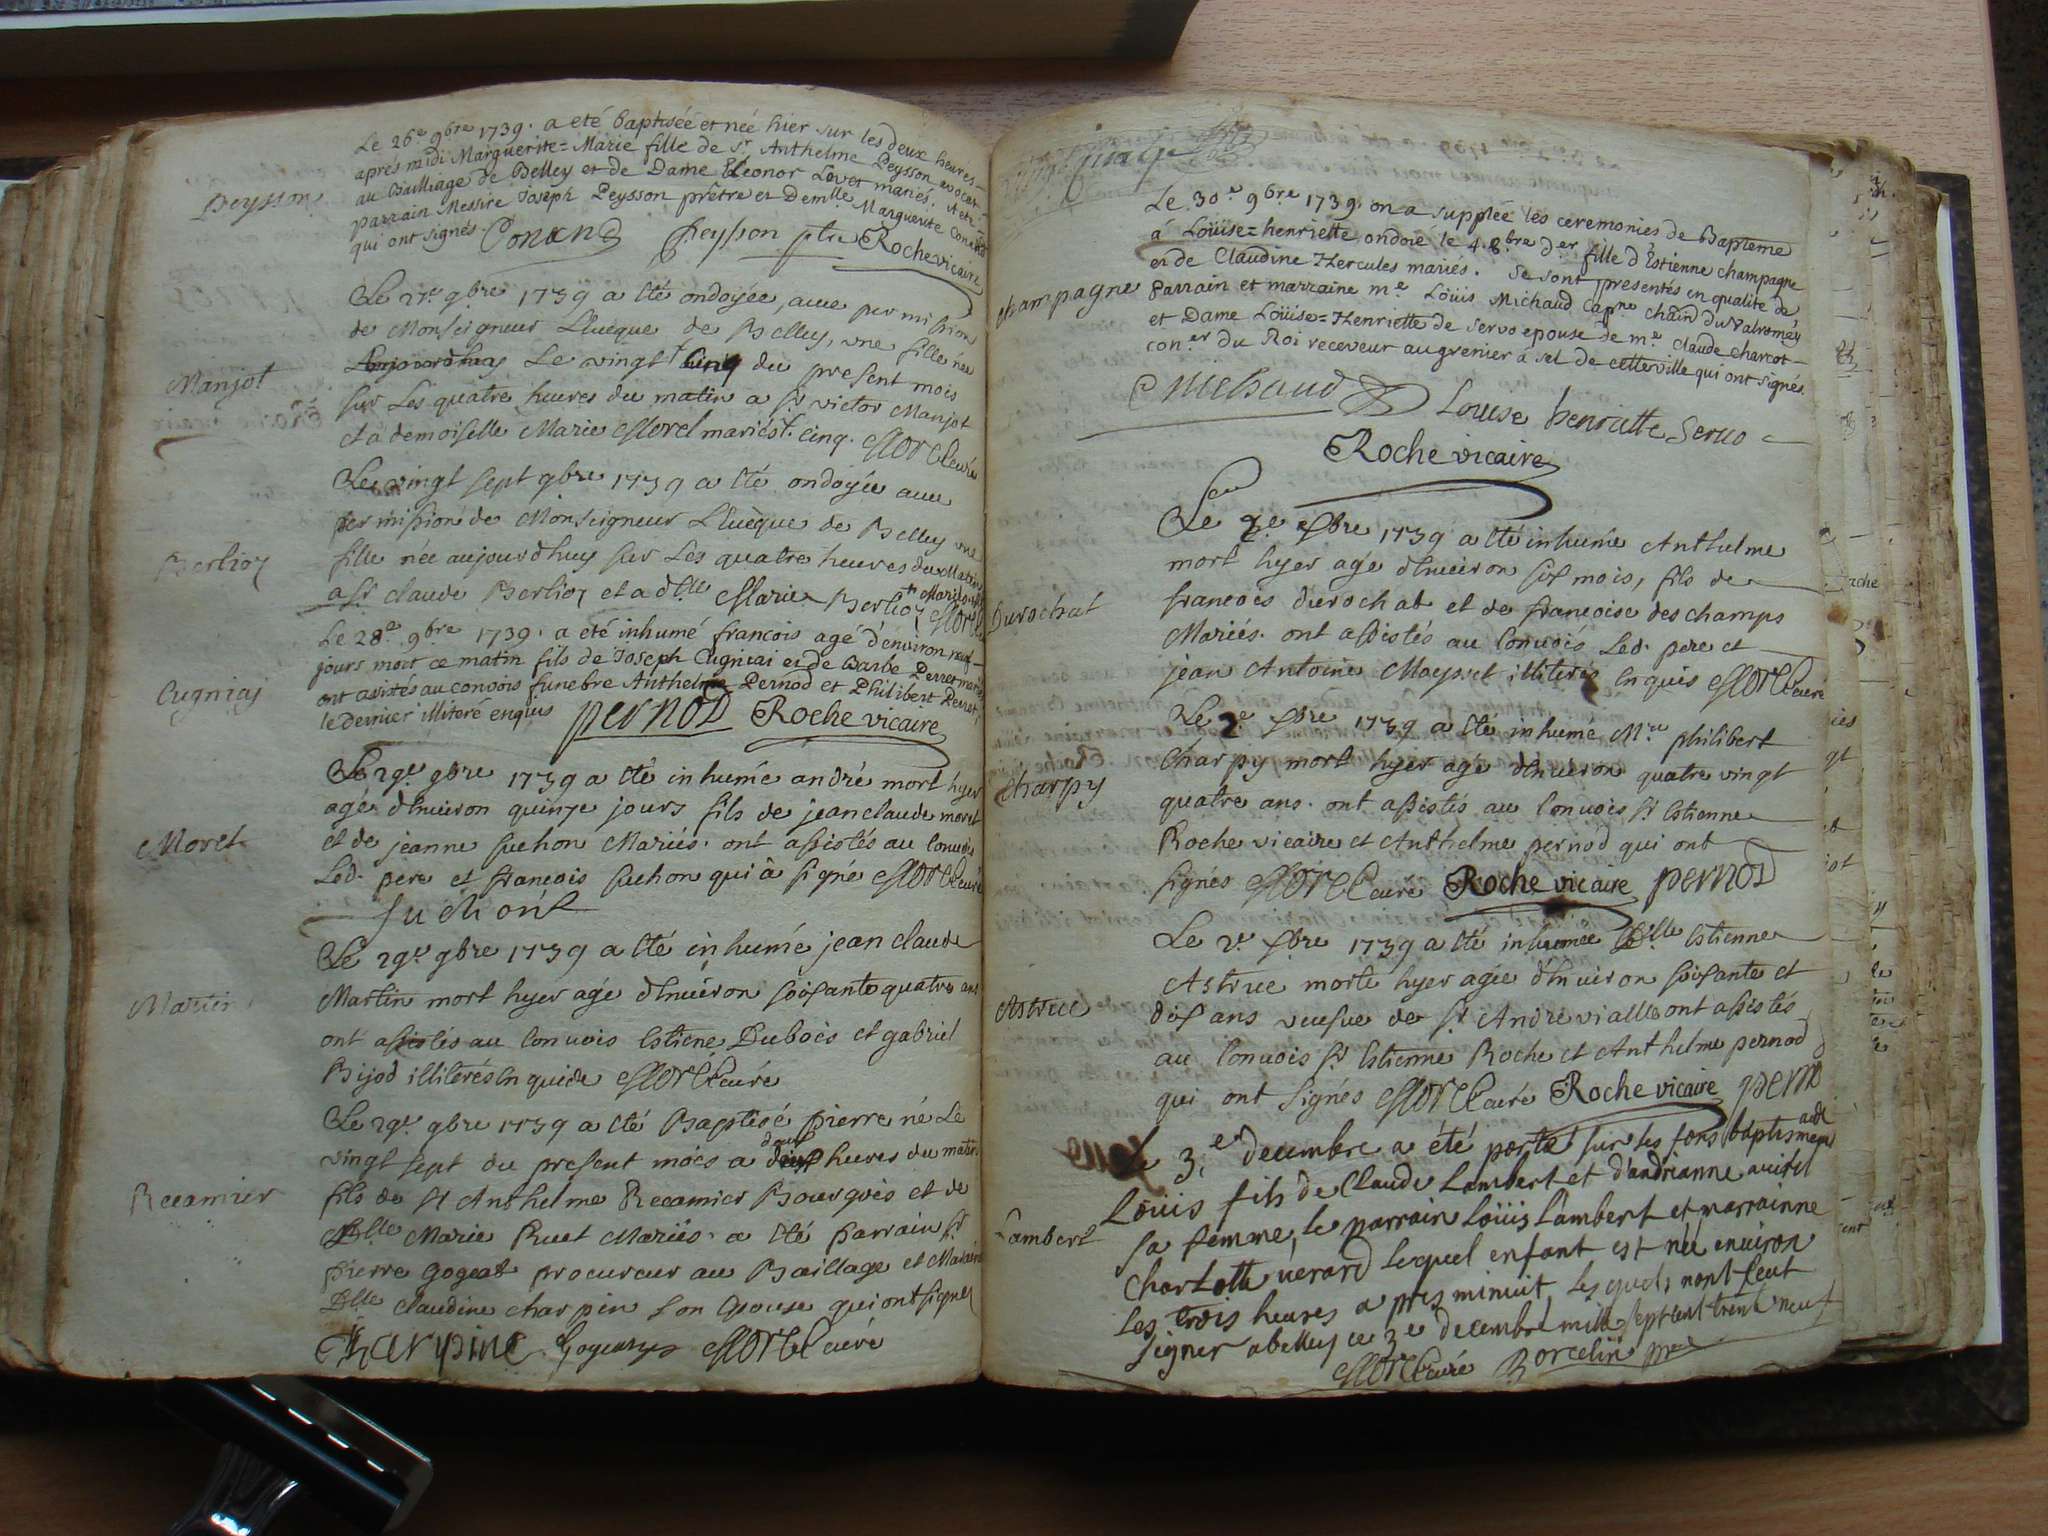 Le 26e 9bre 1739. a eté baptisée et née hier sur les deux heures
aprés midi Marguerite=Marie fille de Sr. Anthelme Peysson avocat
au Bailliage de Belley et de Dame Eleonor Lovet mariés. A eté
parrain Messire Joseph Peysson prêtre et Demlle Marguerite Conand
qui ont signés. Conand Peysson ptre Roche vicaire
Peysson
Le 27e 9bre 1739 a eté ondoyée, avec permission
de Monseigneur L'Evêque de Belley, une fille née
Le vingt cinq du present mois
sur Les quatre heures du matin a Sr victor Manjot
et a demoiselle Marie Morel mariés. cinq. Morel curé
Manjot
Le vingt sept 9bre 1739 a eté ondoyée avec
permission de Monseigneur L'Evêque de Belley une
fille née aujourdhuy sur Les quatre heures du Matin
a Sr claude Berlioz et a dlle Marie Berlioz + Mariés Morel
Berlioz
Le 28e 9bre 1739. a eté inhumé francois agé d'environ neuf
jours mort ce matin fils de Joseph Cugniai et de Barbe Perret mariés
ont asistés au convois funebre Anthelme Pernod et Philibert Perret,
le Dernier illiteré enquis pernod Roche vicaire
Cugniaj
Le 29e 9bre 1739 a eté inhumé andré mort hyer
agé d'Environ quinze jours fils de jean claude moret
et de jeanne suchon Mariés. ont assistés au convois
Led. pere et francois suchon qui à signé Morel curé
Suchont
Moret
Le 29e 9bre 1739 a eté inhumé jean claude
Martin mort hyer agé d'Environ soisante quatre ans
ont assistés au Convois Estiene Dubois et gabriel
Bijod illiterés Enquide Morel curé
Martin
Le 29e 9bre 1739 a eté Baptisé pierre né Le
vingt sept du present mois a deux heures du matin
fils de Sr Anthelme Recamier Bourgois et de
Dlle Marie Ruet Mariés. a eté parrain Sr
pierre gogeat procureur au Baillage et Maraine
Dlle claudine charpin son Epouse qui ont signés
Charpine Morel curé
Recamier
Le 30e 9bre 1739. on a supplée les ceremonies de Bapteme
á Loüise=henriette ondoie le 4. 8bre der fille d'Estienne champagne
et de Claudine Hercules mariés. Se sont presentés en qualité de
Parrain et marraine me Loüis Michaud capne chain du Valromey
et Dame Loüise=Henriette de Servo epouse de me Claude Charcot
coner du Roi receveur au grenier a sel de cette ville qui ont signés.
Michaud Louise henriette Servo
Roche vicaire
champagne
Le 2e xbre 1739 a eté inhumé Anthelme
mort hyer agé d'Environ six mois, fils de
francois durochat et de francoise des champs
Mariés. ont assistés au Convois Led. pere et
jean Antoine Maysset illiterés Enquis Morel curé
Durochat
Le 2e xbre 1739 a eté inhumé Mre philibert
Charpy mort hyer agé d'Environ quatre vingt
quatre ans. ont assistés au Convois Sr Estienne
Roche vicaire et Anthelme pernod qui ont
signés Morel curé Roche vicaire pernod
Charpy
Le 2e xbre 1739 a eté inhumée Dlle Estienne
Astruc morte hyer agée d'Environ soisante et
dix ans veufve de Sr André vialle ont assistés
au Convois Sr Estienne Roche et Anthelme pernod
qui ont signés Morel curé Roche vicaire pern
Astruc
Le 3e decembre a été porté sur les fons baptismeaux
Loüis fils de Claude Lambert et d'andrianne avitel
sa femme, le parrain Loüis Lambert et marrainne
Charlotte verard lequel enfant est née environ
les trois heures apres minuit, lesquels n'ont sceut
signer a belley ce 3e decembre mille sept cent trente neuf
Morel curé Borcelin
Lambert